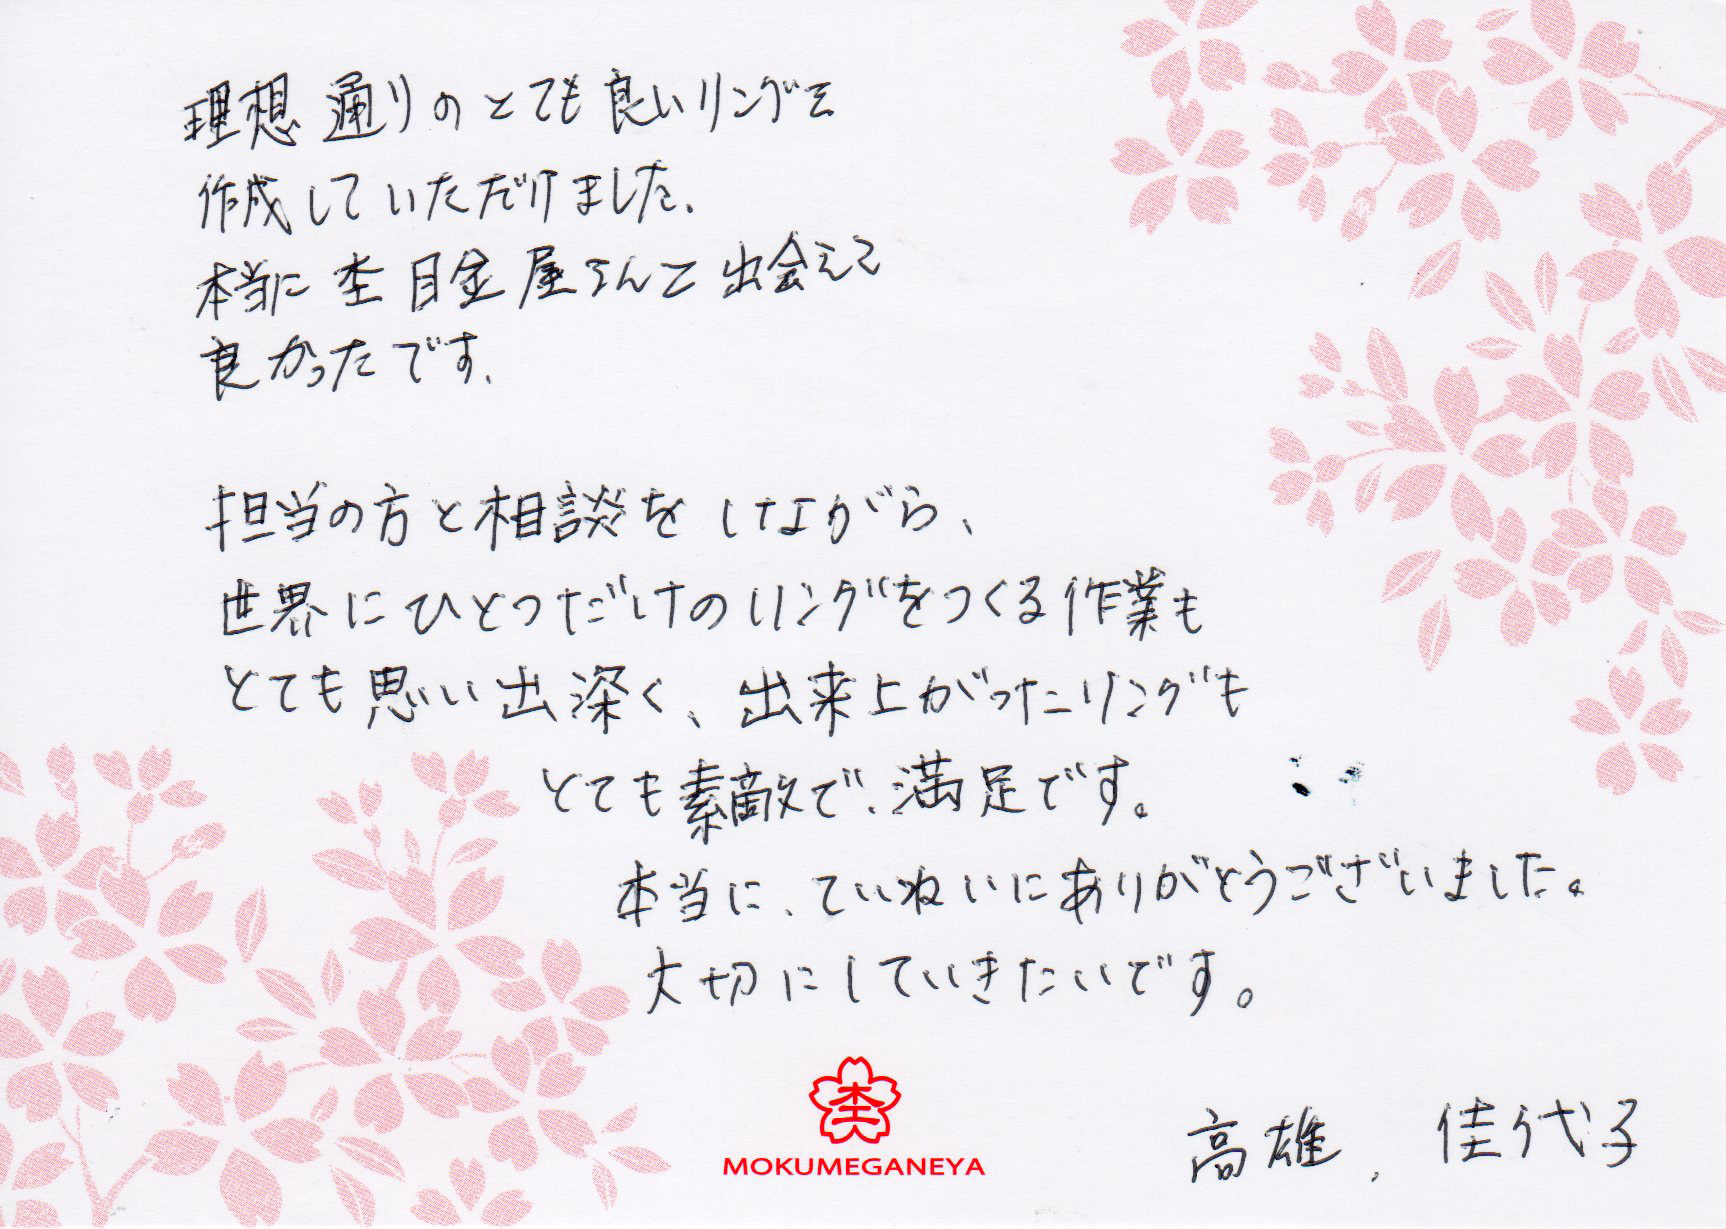 理想通りのとても良いリングを
作成していただけました.
本当に杢目金屋さんと出会えて
良かったです.
担当の方と相談をしながら、
世界にひとつだけのリングをつくる作業も
とても思い出深く、出来上がったリングも
とても素敵で、満足です。
本当に、ていねいにありがとうございました。
大切にしていきたいです。
杢
MOKUMEGANEYA
高雄、佳代子